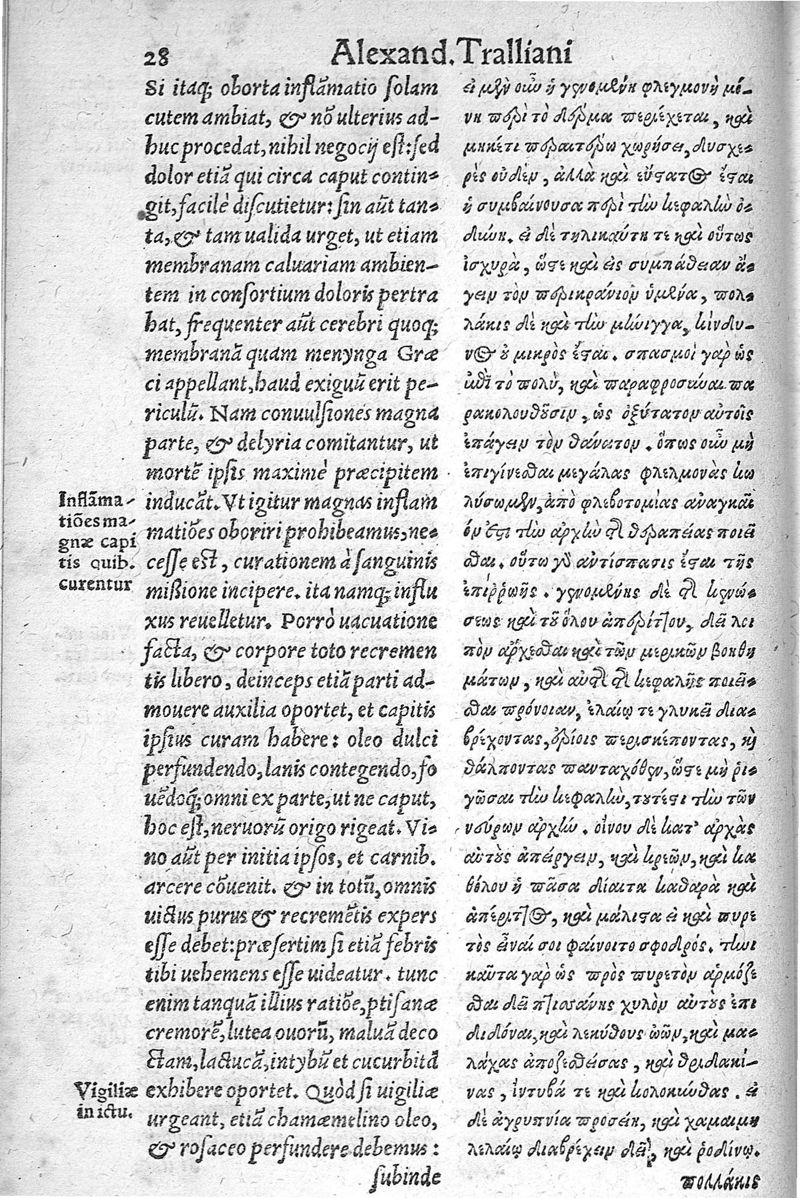 28
Alexand. Tralliani
Si itaq; oborta inflãmatio solam
cutem ambiat, & nõ ulterius ad-
huc procedat, nihil negocij est: sed
dolor etiã qui circa caput contin-
git, facilè discutietur: sin aũt tan-
ta, & tam ualida urget, ut etiam
membranam caluariam ambien-
tem in consortium doloris pertra
hat, frequenter aũt cerebri quoq;
membranã quam menynga Græ
ci appellant, haud exiguũ erit pe-
riculũ. Nam conuulsiones magna
parte, & delyria comitantur, ut
mortẽ ipsis maximè præcipitem
inducãt. Vt igitur magnas inflam
matiões oboriri prohibeamus, ne-
cesse est, curationem à sanguinis
mißione incipere. ita namq; influ
xus reuelletur. Porrò uacuatione
facta, & corpore toto recremen
tis libero, deinceps etiã parti ad-
mouere auxilia oportet, et capitis
ipsius curam habere: oleo dulci
perfundendo, lanis contegendo, fo
uẽdoq; omni ex parte, ut ne caput,
hoc est, neruorũ origo rigeat. Vi-
no aũt per initia ipsos, et carnib.
arcere cõuenit. & in totũ, omnis
uictus purus & recremẽtis expers
esse debet: præsertim si etiã febris
tibi uehemens esse uideatur. tunc
enim tanquã illius ratiõe, ptisanæ
cremorẽ, lutea ouorũ, maluã deco
ctam, lactucã, intybũ et cucurbitã
exhibere oportet. Quòd si uigiliæ
urgeant, etiã chamæmelino oleo,
& rosaceo perfundere debemus:
subinde
Inflãma-
tiões ma-
gnæ capi
tis quib.
curentur
Vigiliæ
in ictu.
εἰ μὲν οὖν ἡ γενομένη φλεγμονὴ μό-
νη περὶ τὸ δέρμα περιέχεται, καὶ
μηκέτι περαιτέρω χωρήσει, δυσχε-
ρὲς οὐδὲν, ἀλλὰ καὶ εὔπατος ἔσται
ἡ συμβαίνουσα περὶ τὴν κεφαλὴν ὀ-
δύνη. εἰ δὲ τηλικαύτη τε καὶ οὕτως
ἰσχυρὰ, ὥστε καὶ εἰς συμπάθειαν ἄ-
γειν τὸν περικράνιον ὑμένα, πολ-
λάκις δὲ καὶ τὴν μήνιγγα, κίνδυ-
νος ὁ μικρὸς ἔσται. σπασμοὶ γὰρ ὡς
ἐπὶ τὸ πολὺ, καὶ παραφροσύναι πα
ρακολουθοῦσιν, ὡς ὀξύτατον αὐτοῖς
ἐπάγειν τὸν θάνατον. ὅπως οὖν μὴ
ἐπιγίνεσθαι μεγάλας φλεγμονὰς κω
λύσωμεν, ἀπὸ φλεβοτομίας ἀναγκαῖ
όν ἐστι τὴν ἀρχὴν τῆς θεραπείας ποιεῖ
σθαι. οὕτω γὰρ ἀντίσπασις ἔσται τῆς
ἐπιῤῥοῆς. γενομένης δὲ τῆς κενώ-
σεως καὶ τοῦ ὅλου ἀπερίττου, δεῖ λοι
πὸν ἄρχεσθαι καὶ τῶν μερικῶν βοηθη
μάτων, καὶ αὐτῆς τῆς κεφαλῆς ποιεῖ-
σθαι πρόνοιαν, ἐλαίῳ τε γλυκεῖ δια-
βρέχοντας, ἐρίοις περισκέποντας, καὶ
θάλποντας πανταχόθεν, ὥστε μὴ ῥι-
γῶσαι τὴν κεφαλὴν, τουτέστι τὴν τῶν
νεύρων ἀρχήν. οἴνου δὲ κατ' ἀρχὰς
αὐτοὺς ἀπείργειν, καὶ κρεῶν, καὶ κα
θόλου ἡ πᾶσα δίαιτα καθαρὰ καὶ
ἀπέριττος, καὶ μάλιστα εἰ καὶ πυρε
τὸς εἶναί σοι φαίνοιτο σφοδρός. τηνι
καῦτα γὰρ ὡς πρὸς πυρετὸν ἁρμόζε
σθαι δεῖ πτισσάνης χυλὸν αὐτοὺς ἐπι
διδόναι, καὶ λεκύθους ὠῶν, καὶ μα-
λάχας ἀποζεσθείσας, καὶ θριδακί-
νας, ἴντυβά τε καὶ κολοκύνθας. εἰ
δὲ ἀγρυπνία προσείη, καὶ χαμαιμη
λελαίῳ διαβρέχειν δεῖ, καὶ ῥοδίνῳ.
πολλάκις